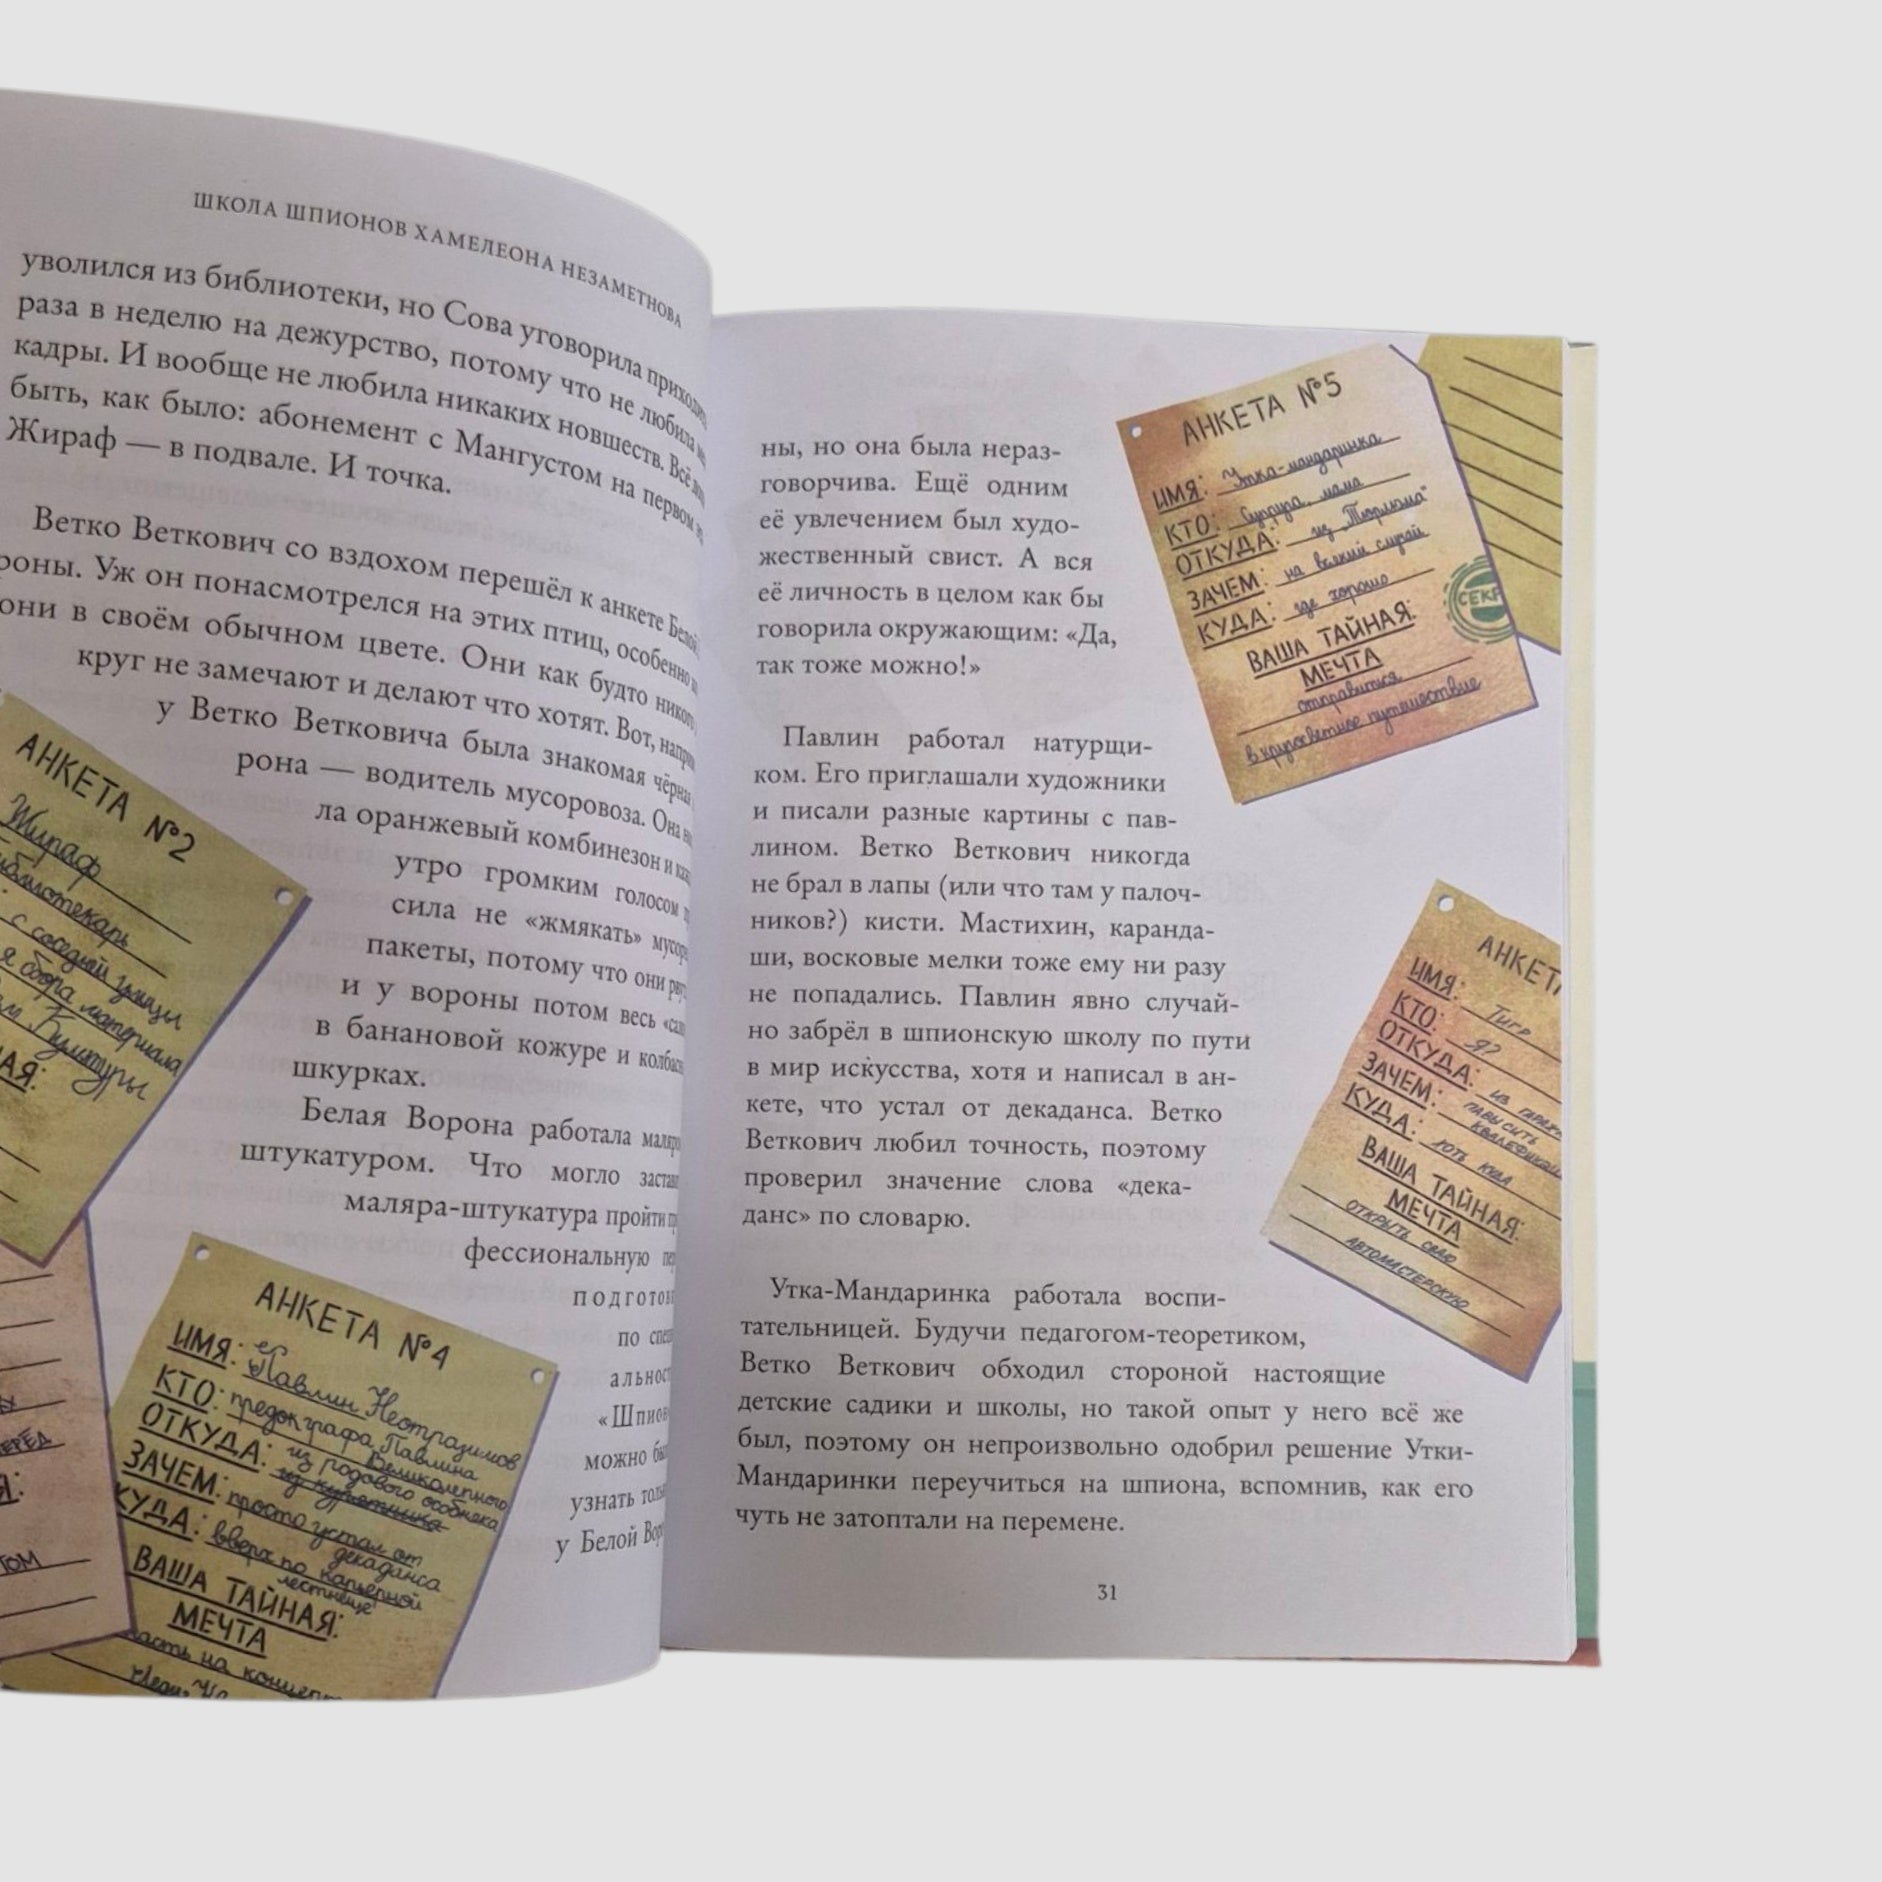 ШКОЛА ШПИОНОВ ХАМЕЛЕОНА НЕЗАМЕТНОВА
уволился из библиотеки, но Сова уговорила
раза в неделю на дежурство, потому что не любила
кадры. И вообще не любила никаких новшеств. Всё
быть, как было: абонемент с Мангустом на первом
Жираф — в подвале. И точка.
Ветко Веткович со вздохом перешёл к анкете Белой
Уж он понасмотрелся на этих птиц, особенно
они в своём обычном цвете. Они как будто никого
круг не замечают и делают что хотят. Вот,
у Ветко Ветковича была знакомая чёрная
рона — водитель мусоровоза. Она
ла оранжевый комбинезон и
утро громким голосом
сила не «жмякать»
пакеты, потому что они
и у вороны потом весь
в банановой кожуре и
шкурках.
Белая Ворона работала
штукатуром. Что могло
маляра-штукатура пройти
фессиональную
по
можно
узнать
у Белой
АНКЕТА №2
Жираф
Библиотекарь
с соседней улицы
сбора материала
Культуры
АНКЕТА №4
ИМЯ: Павлин Неотразимов
КТО: предок графа Павлина Великолепного
ОТКУДА: из родового особняка
из курятника
ЗАЧЕМ: просто устал от декаданса
КУДА: вверх по карьерной лестнице
ВАША ТАЙНАЯ:
МЕЧТА
на
ны, но она была нераз-
говорчива. Ещё одним
её увлечением был худо-
жественный свист. А вся
её личность в целом как бы
говорила окружающим: «Да,
так тоже можно!»
Павлин работал натурщи-
ком. Его приглашали художники
и писали разные картины с пав-
лином. Ветко Веткович никогда
не брал в лапы (или что там у палоч-
ников?) кисти. Мастихин, каранда-
ши, восковые мелки тоже ему ни разу
не попадались. Павлин явно случай-
но забрёл в шпионскую школу по пути
в мир искусства, хотя и написал в ан-
кете, что устал от декаданса. Ветко
Веткович любил точность, поэтому
проверил значение слова «дека-
данс» по словарю.
Утка-Мандаринка работала воспи-
тательницей. Будучи педагогом-теоретиком,
Ветко Веткович обходил стороной настоящие
детские садики и школы, но такой опыт у него всё же
был, поэтому он непроизвольно одобрил решение Утки-
Мандаринки переучиться на шпиона, вспомнив, как его
чуть не затоптали на перемене.
31
АНКЕТА №5
ИМЯ: Утка-мандаринка
КТО: Супруга, мама
ОТКУДА: из
ЗАЧЕМ: на всякий случай
КУДА: где хорошо
ВАША ТАЙНАЯ:
МЕЧТА
отправиться
в кругосветное путешествие
СЕКР
АНКЕТА
ИМЯ: Тигр
КТО: Я?
ОТКУДА: ИЗ
ЗАЧЕМ: ПАВЫСИТЬ
КУДА: ХОТЬ КУДА
ВАША ТАЙНАЯ:
МЕЧТА
ОТКРЫТЬ СВАЮ
АВТОМАСТЕРСКУЮ